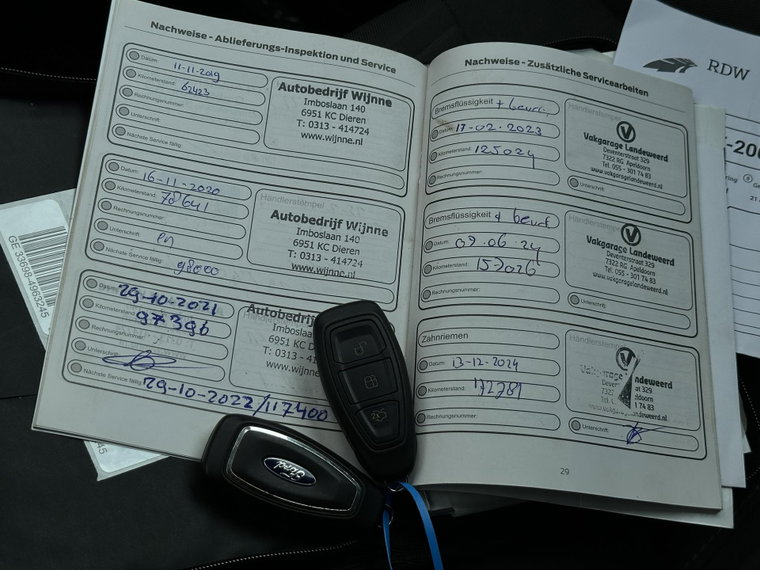 Nachweise - Ablieferungs-Inspektion und Service
Datum: 11-11-2019
Kilometerstand: 62423
Rechnungsnummer:
Unterschrift:
Nächste Service fällig:
Autobedrijf Wijnne
Imboslaan 140
6951 KC Dieren
T: 0313 - 414724
www.wijnne.nl
Datum: 16-11-2020
Kilometerstand: 78641
Rechnungsnummer:
Unterschrift:
Nächste Service fällig: 98000
Händlerstempel
Autobedrijf Wijnne
Imboslaan 140
6951 KC Dieren
T: 0313 - 414724
www.wijnne.nl
Datum: 29-10-2021
Kilometerstand: 97396
Rechnungsnummer:
Unterschrift:
Nächste Service fällig: 29-10-2022/117400
Autobedrijf
Imboslaan
6951 KC
T: 0313 -
www.wijnne
Ford
Nachweise - Zusätzliche Servicearbeiten
Bremsflüssigkeit +
Datum: 17-02-2023
Kilometerstand: 125024
Rechnungsnummer:
Händlerstempel
Vakgarage Landeweerd
Deventerstraat 329
7322 RG Apeldoorn
Tel. 055 - 301 74 83
www.vakgaragelandeweerd.nl
Unterschrift:
Bremsflüssigkeit +
Datum: 07.06.24
Kilometerstand: 157026
Rechnungsnummer:
Händlerstempel
Vakgarage Landeweerd
Deventerstraat 329
7322 RG Apeldoorn
Tel. 055 - 301 74 83
www.vakgaragelandeweerd.nl
Unterschrift:
Zahnriemen
Datum: 13-12-2024
Kilometerstand: 172781
Rechnungsnummer:
Landeweerd
329
Apeldoorn
74 83
Unterschrift:
29
RDW
GE 33698-4963245